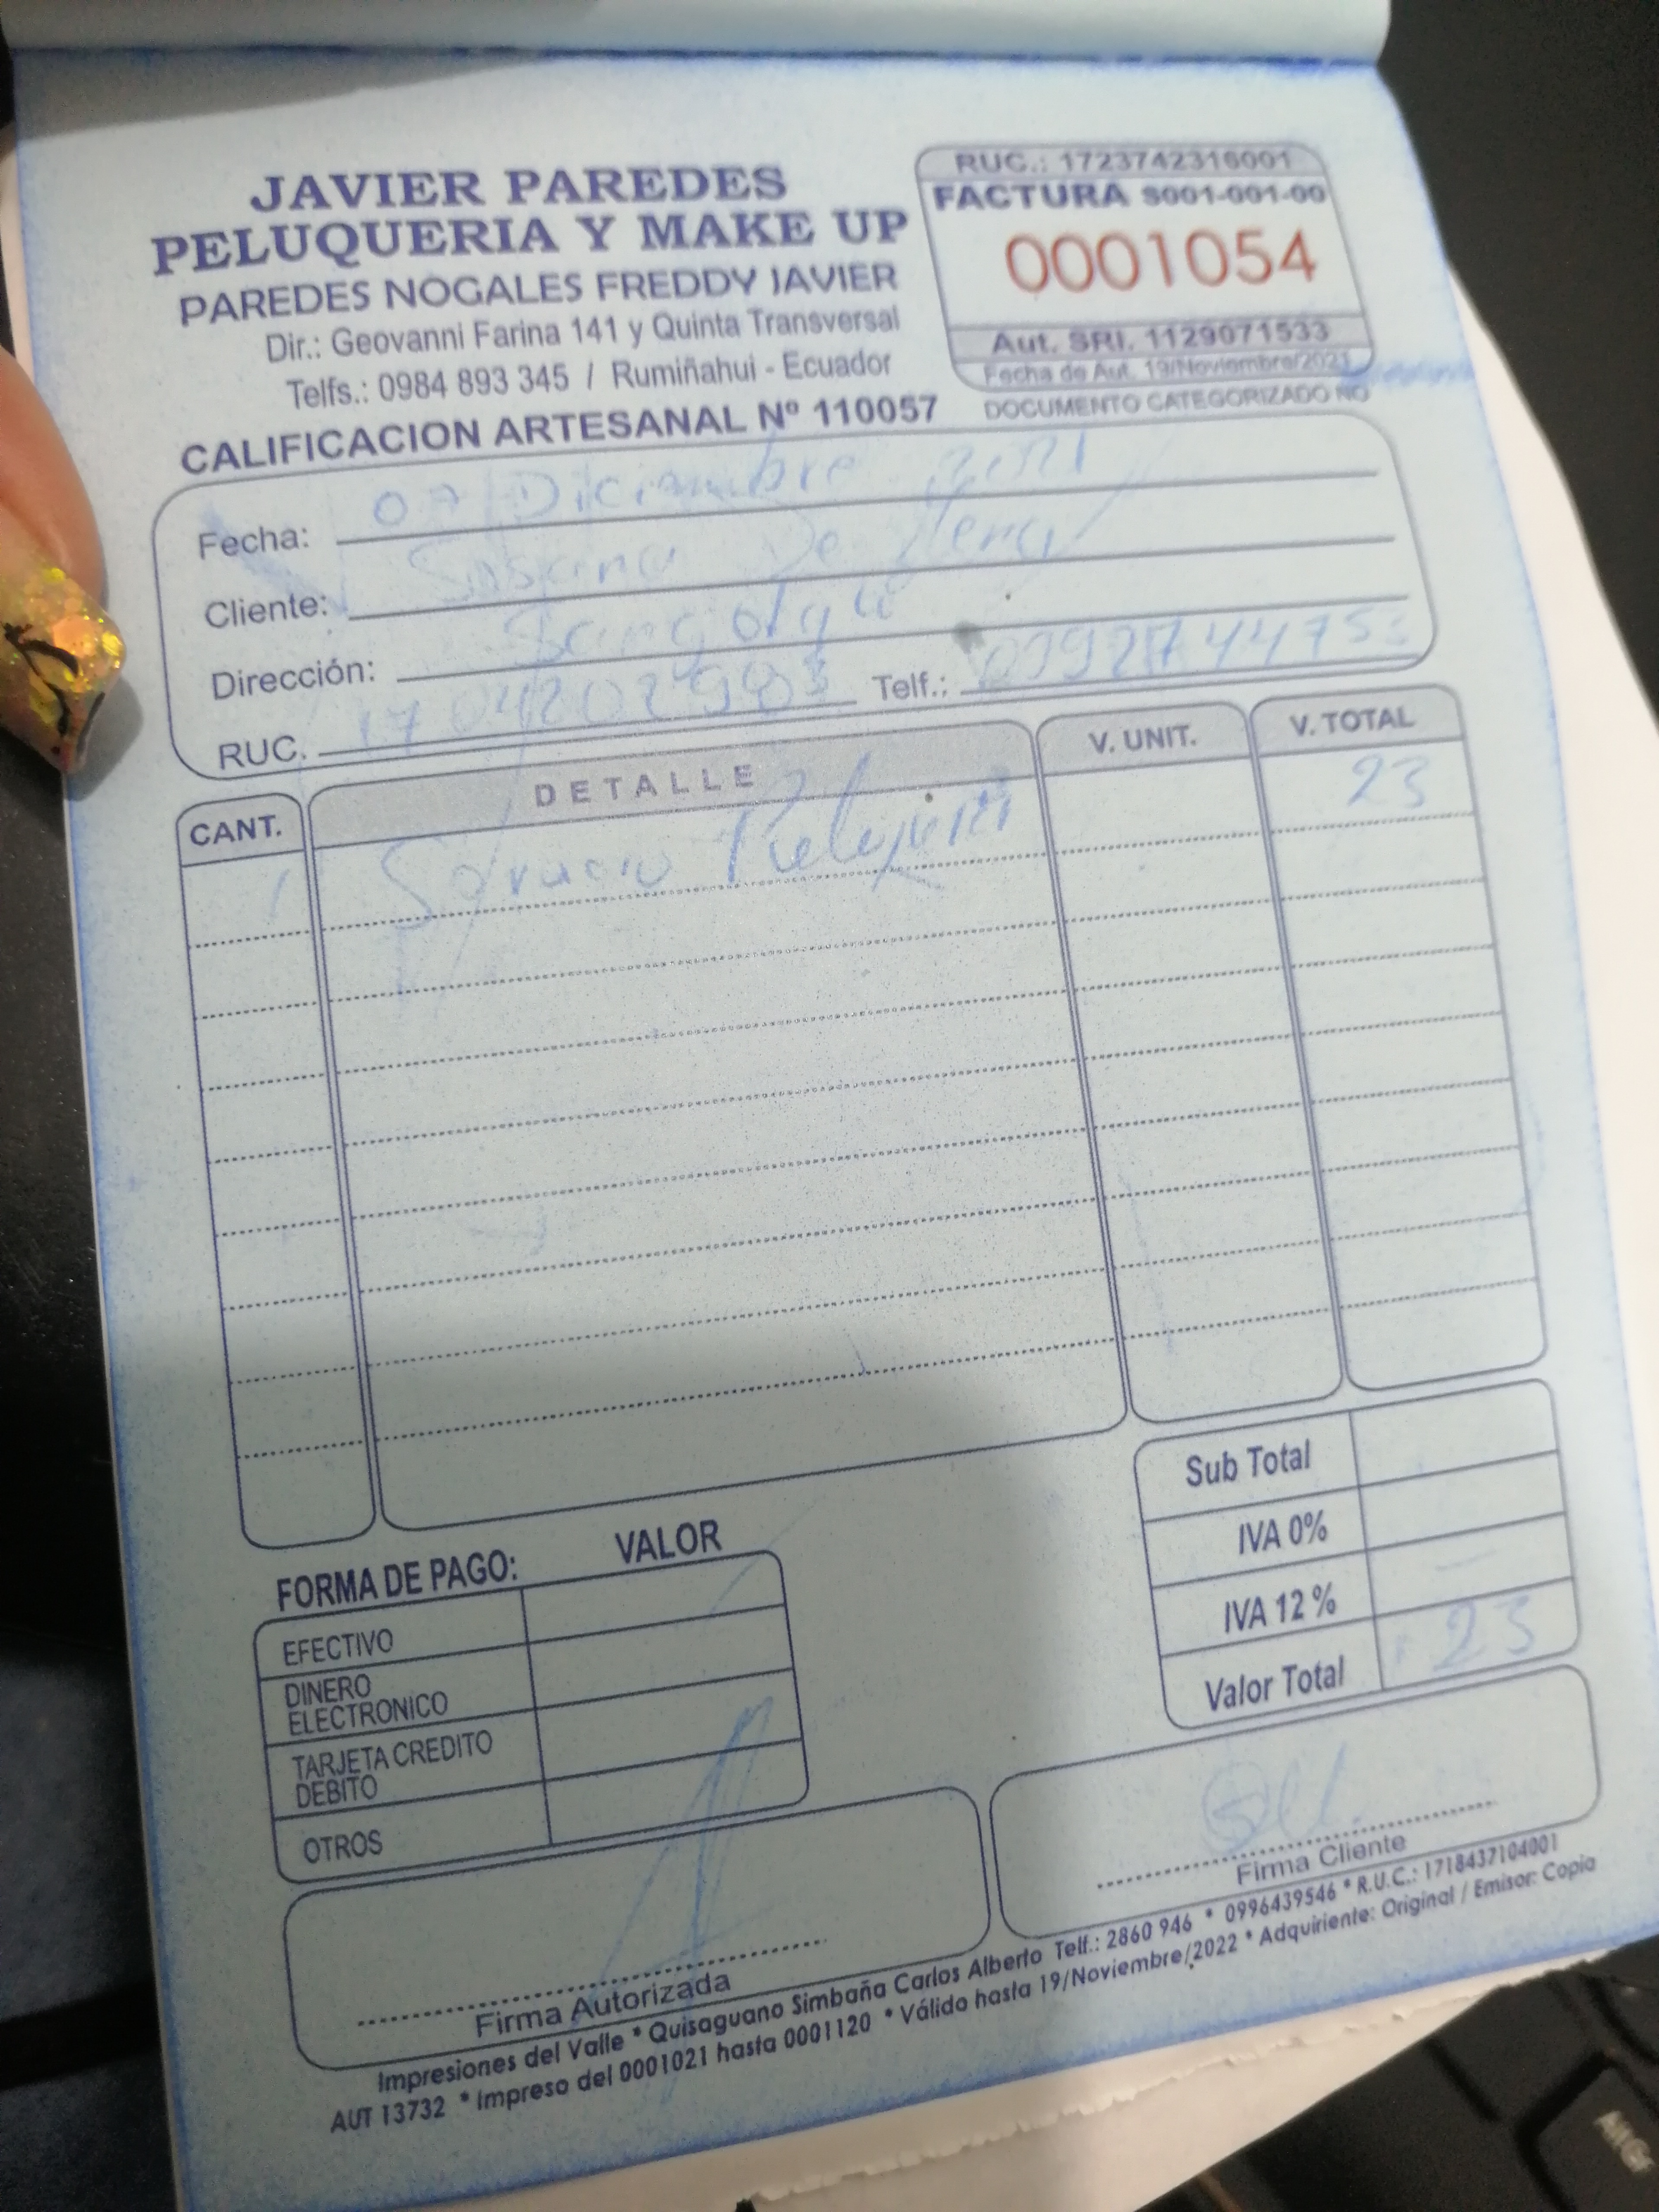 JAVIER PAREDES
PELUQUERIA Y MAKE UP
PAREDES NOGALES FREDDY JAVIER
Dir.: Geovanni Farina 141 y Quinta Transversal
Telfs.: 0984 893 345 / Rumiñahui - Ecuador
CALIFICACION ARTESANAL Nº 110057
RUC.: 1723742316001
FACTURA S001-001-00
0001054
Aut. SRI. 1129071533
Fecha de Aut. 19/Noviembre/2021
DOCUMENTO CATEGORIZADO NO
Fecha: 07 Diciembre 2021
Cliente: De
Dirección: Sangolqui
RUC. Telf.:
CANT. DETALLE V. UNIT. V. TOTAL
1 23
Sub Total
IVA 0%
IVA 12 %
Valor Total 23
FORMA DE PAGO: VALOR
EFECTIVO
DINERO
ELECTRONICO
TARJETA CREDITO
DEBITO
OTROS
Firma Autorizada
Firma Cliente
Impresiones del Valle * Quisaguano Simbaña Carlos Alberto Telf.: 2860 946 * 0996439546 * R.U.C.: 1718437104001
AUT 13732 * Impreso del 0001021 hasta 0001120 * Válido hasta 19/Noviembre/2022 * Adquiriente: Original / Emisor: Copia